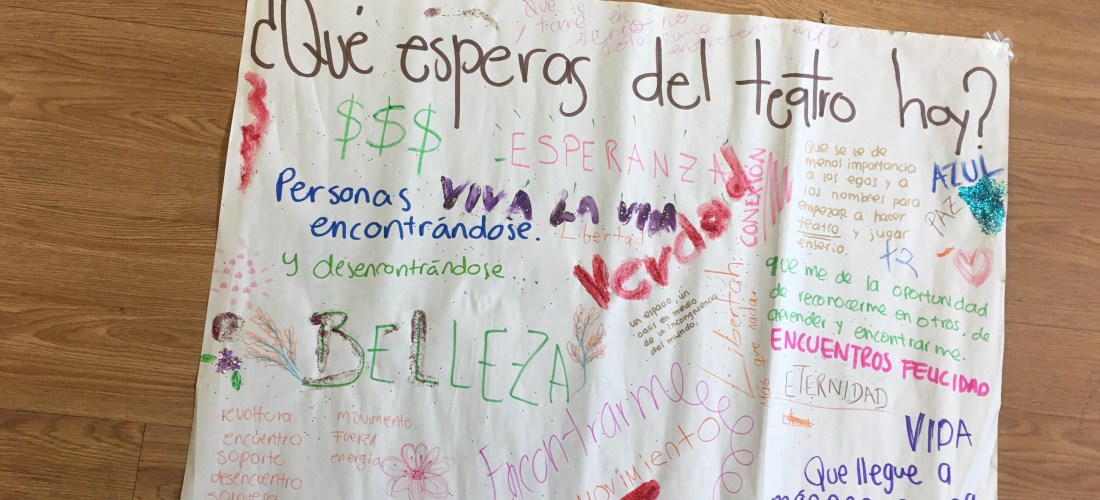 ¿Qué esperas del teatro hoy?
$$$
-ESPERANZA
CONEXIÓN
Que se le de
menos importancia
a los egos y a
los nombres para
empezar a hacer
teatro y jugar
enserio.
AZUL
PAZ
Personas
encontrándose.
VIVA LA VIDA
Libertad
Verdad
y desencontrándose...
un espacio, un
oasis en medio
de la incongruencia
del mundo.
Libertáh
Más que nada.
que me de la oportunidad
de reconocerme en otros, de
aprender y encontrarme.
ENCUENTROS FELICIDAD
BELLEZA
ETERNIDAD
revoltura
encuentro
soporte
desencuentro
movimiento
fuerza
energía
Encontrarme
movimiento
VIDA
Que llegue a